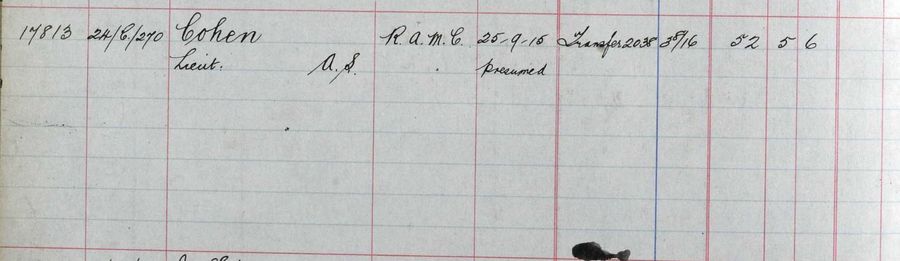 17813 24/C/270 Cohen R.A.M.C. 25-9-15 Transfer 2035 52 5 6
Lieut. A. S. presumed